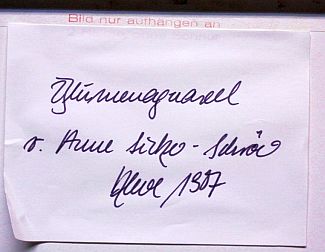 Bild nur aufhängen an
Blumenaquarell
v. Anne Sicko - Schrö
Kleve 1987